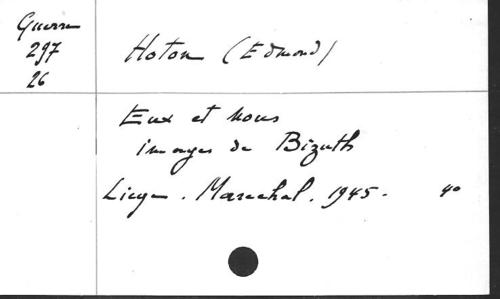 Guerre
297
26
Hoton (Edmond)
Eux et nous
images de Bizuth
Liege. Marechal. 1945. 4o